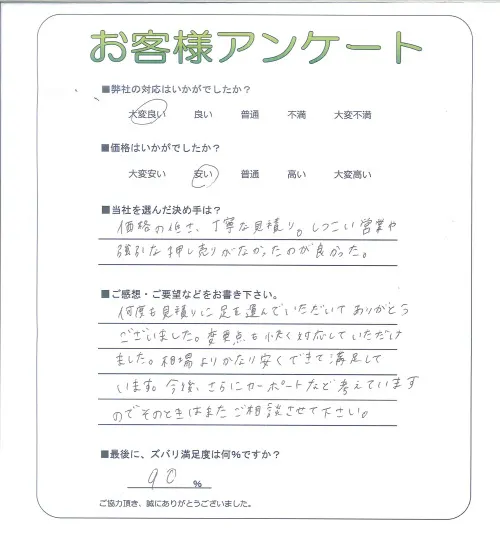 お客様アンケート
■弊社の対応はいかがでしたか？
大変良い 良い 普通 不満 大変不満
■価格はいかがでしたか？
大変安い 安い 普通 高い 大変高い
■当社を選んだ決め手は？
価格の低さ、丁寧な見積り。しつこい営業や
強引な押し売りがなかったのが良かった。
■ご感想・ご要望などをお書き下さい。
何度も見積りに足を運んでいただいてありがとう
ございました。変更点も快く対応していただけ
ました。相場よりかなり安くできて満足して
います。今後、さらにカーポートなど考えています
のでそのときはまたご相談させて下さい。
■最後に、ズバリ満足度は何%ですか？
90 %
ご協力頂き、誠にありがとうございました。